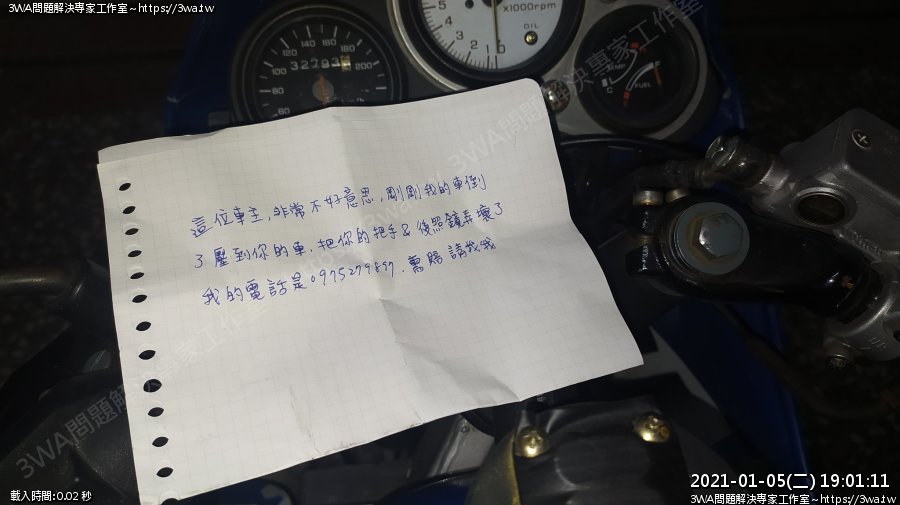 3WA問題解決專家工作室~https://3wa.tw
x1000rpm
OIL
5
0
60
80
100
120
140
160
180
200
32793
TEMP
C
FUEL
這位車主,非常不好意思,剛剛我的車倒
了壓到你的車,把你的把手&後照鏡弄壞了
我的電話是
需賠請找我
3WA問題解決專家工作室
載入時間:0.02 秒
2021-01-05(二) 19:01:11
3WA問題解決專家工作室~https://3wa.tw